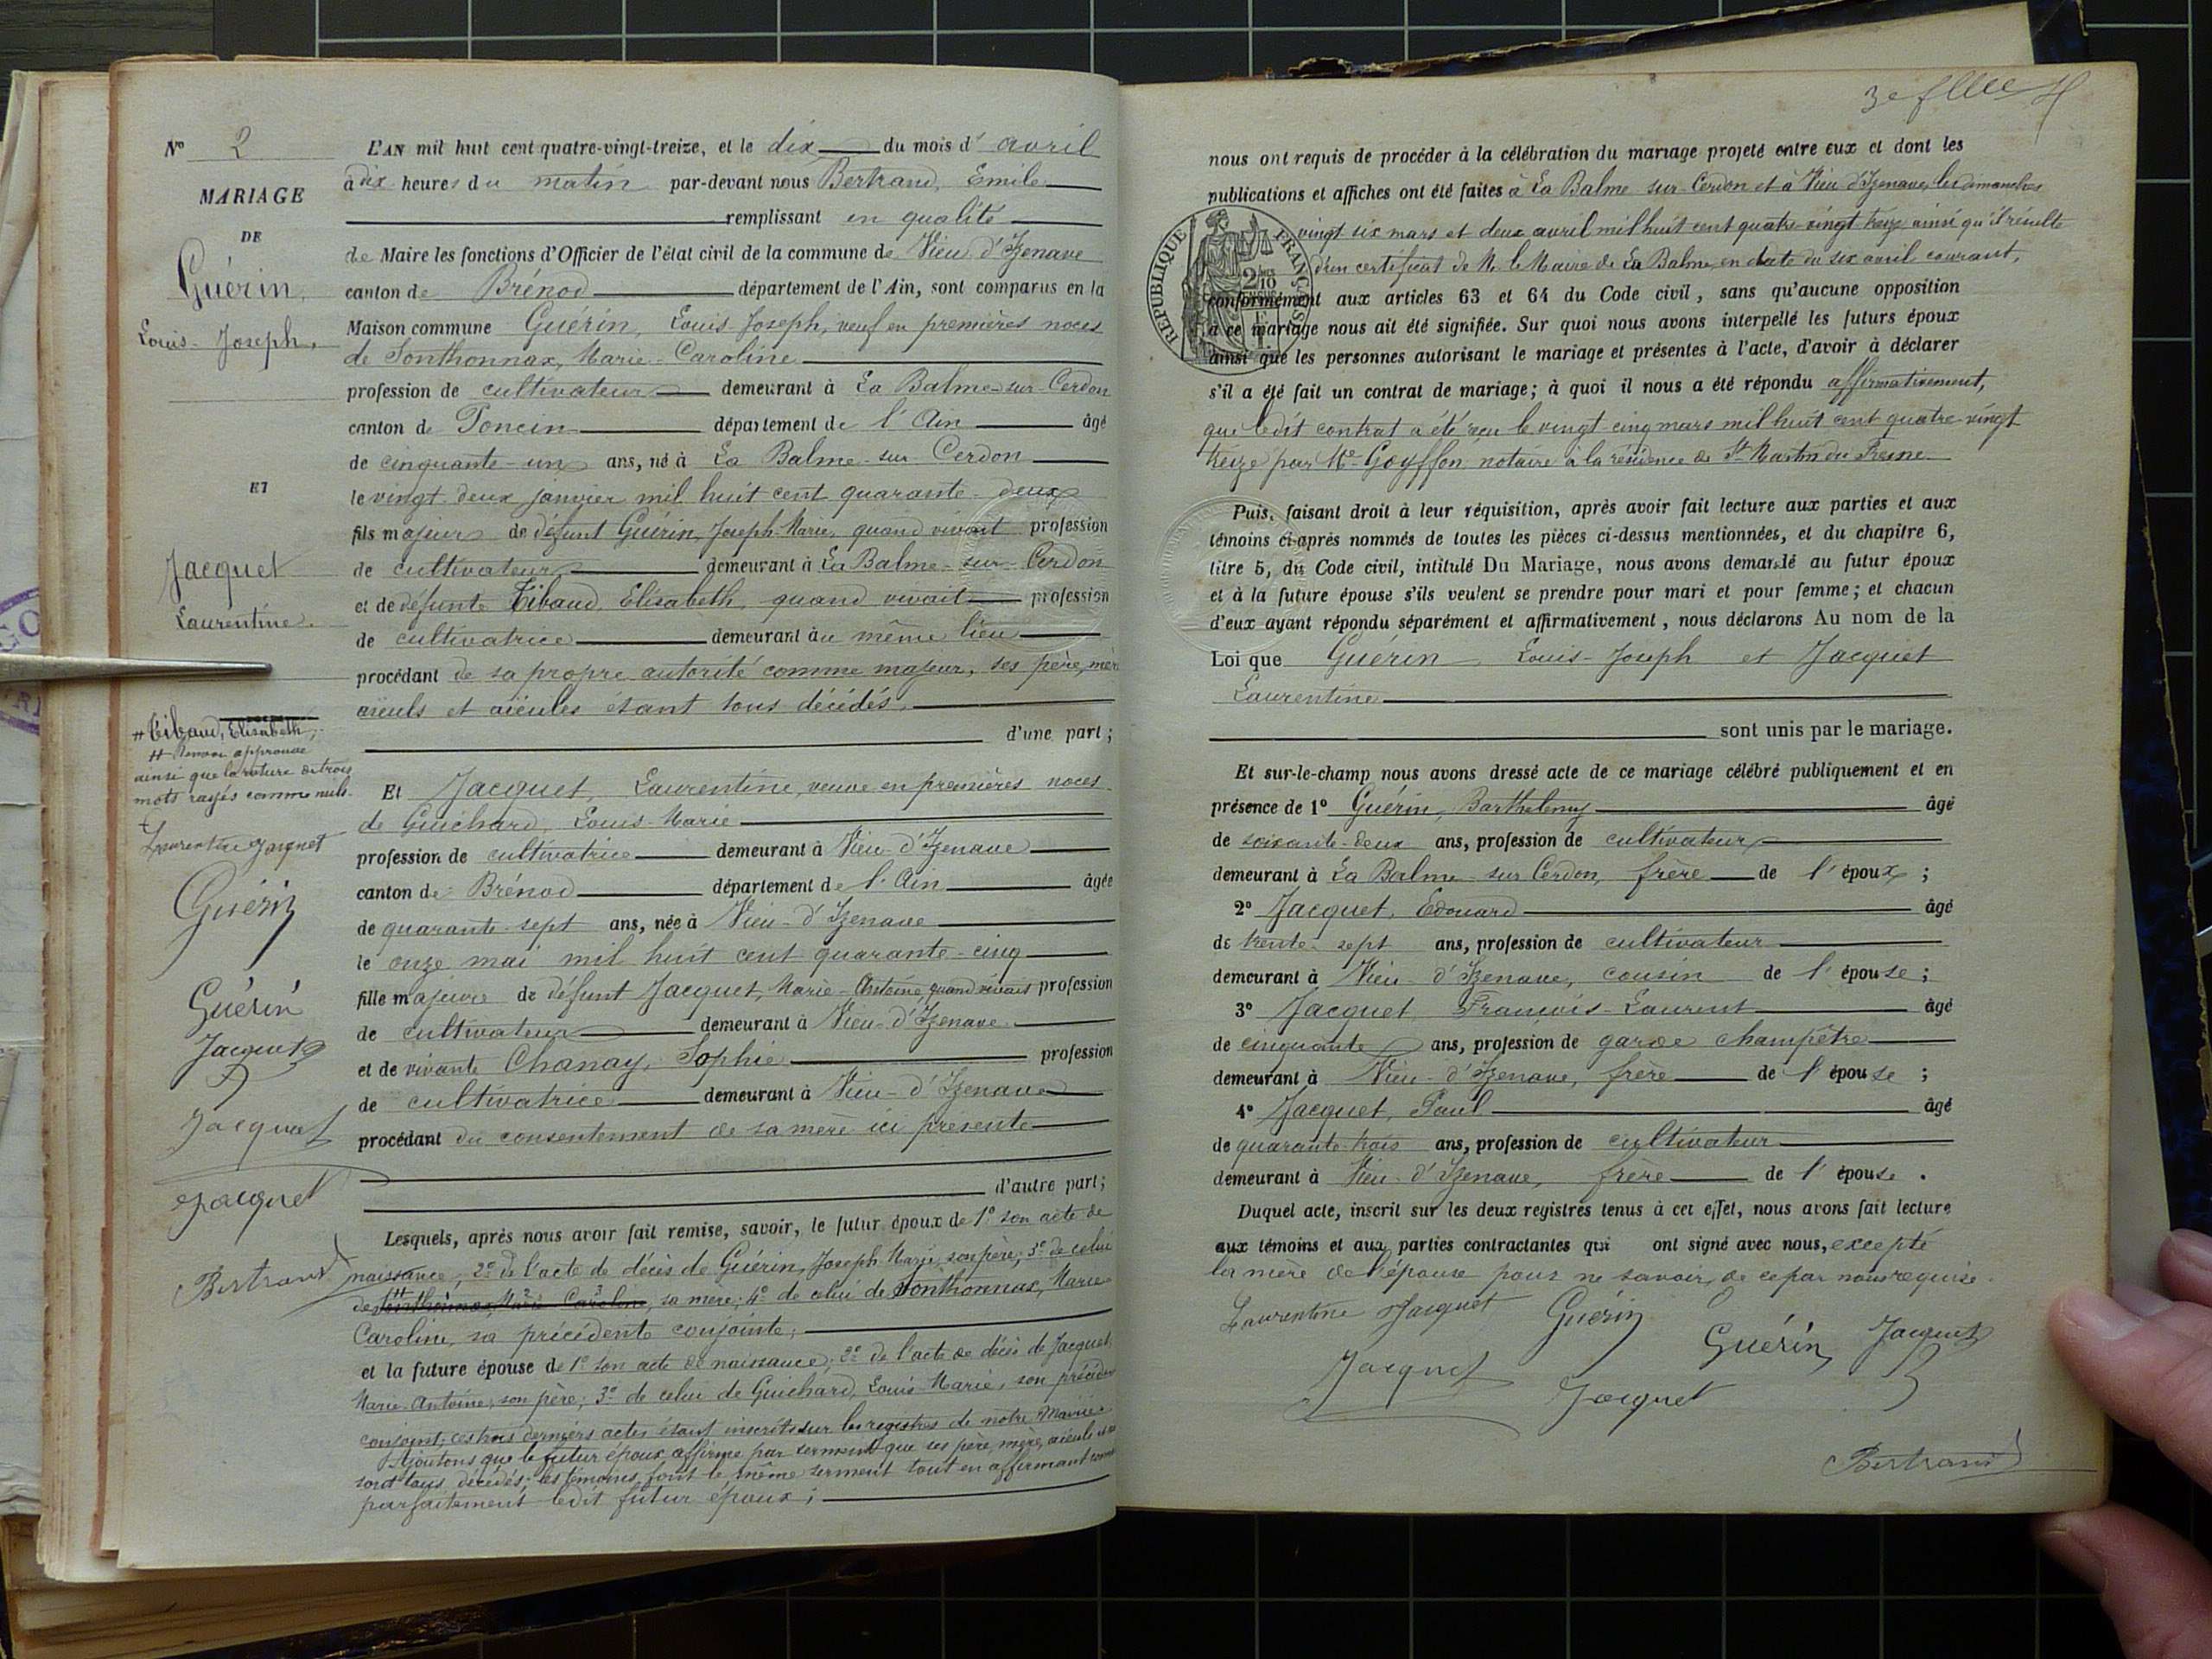 N° 2
MARIAGE
DE
Guérin,
Louis-Joseph,
ET
Jacquet
Laurentine.
# Tibaud, Elisabeth,
# Renvoi approuvé
ainsi que la rature de trois
mots rayés comme nuls.
Laurentine Jacquet
Guérin
Guérin
Jacquet
Jacquet
Jacquet
Bertrand
L'AN mil huit cent quatre-vingt-treize, et le dix du mois d' avril
à dix heures du matin par-devant nous Bertrand, Emile
remplissant en qualité
de Maire les fonctions d'Officier de l'état civil de la commune de Vieu d'Izenave
canton de Brénod département de l'Ain, sont comparus en la
Maison commune Guérin, Louis-Joseph, veuf en premières noces
de Sonthonnax, Marie-Caroline
profession de cultivateur demeurant à La Balme-sur-Cerdon
canton de Poncin département de l'Ain âgé
de cinquante-un ans, né à La Balme-sur-Cerdon
le vingt-deux janvier mil huit cent quarante-deux
fils majeur de défunt Guérin, Joseph-Marie, quand vivait profession
de cultivateur demeurant à La Balme-sur-Cerdon
et de défunte Tibaud, Elisabeth, quand vivait profession
de cultivatrice demeurant au même lieu
procédant de sa propre autorité comme majeur, ses père, mère
aïeuls et aïeules étant tous décédés.
d'une part;
Et Jacquet, Laurentine, veuve en premières noces
de Guichard, Louis-Marie
profession de cultivatrice demeurant à Vieu-d'Izenave
canton de Brénod département de l'Ain âgée
de quarante-sept ans, née à Vieu-d'Izenave
le onze mai mil huit cent quarante-cinq
fille majeure de défunt Jacquet, Marie-Antoine, quand vivait profession
de cultivateur demeurant à Vieu-d'Izenave
et de vivante Chanay, Sophie profession
de cultivatrice demeurant à Vieu-d'Izenave
procédant du consentement de sa mère ici présente
d'autre part;
Lesquels, après nous avoir fait remise, savoir, le futur époux de 1° son acte de
naissance; 2° de l'acte de décès de Guérin, Joseph-Marie, son père; 3° de celui
de # Sonthonnax, Marie Caroline, sa mère; 4° de celui de Sonthonnax, Marie
Caroline, sa précédente conjointe;
et la future épouse de 1° son acte de naissance; 2° de l'acte de décès de Jacquet,
Marie-Antoine, son père; 3° de celui de Guichard, Louis-Marie, son précédent
conjoint; ces trois derniers actes étant inscrits sur les registres de notre Mairie.
Ajoutons que le futur époux affirme par serment que ses père, mère, aïeuls
sont tous décédés; les témoins font le même serment tout en affirmant
parfaitement ledit futur époux;
nous ont requis de procéder à la célébration du mariage projeté entre eux et dont les
publications et affiches ont été faites à La Balme sur Cerdon et à Vieu d'Izenave, les dimanches
vingt six mars et deux avril mil huit cent quatre-vingt-treize ainsi qu'il résulte
d'un certificat de M. le Maire de La Balme, en date du six avril courant,
RÉPUBLIQUE FRANÇAISE
2/10
conformément aux articles 63 et 64 du Code civil, sans qu'aucune opposition
à ce mariage nous ait été signifiée. Sur quoi nous avons interpellé les futurs époux
ainsi que les personnes autorisant le mariage et présentes à l'acte, d'avoir à déclarer
s'il a été fait un contrat de mariage; à quoi il nous a été répondu affirmativement,
que ledit contrat a été reçu le vingt cinq mars mil huit cent quatre-vingt
treize par Me Goyffon notaire à la résidence de St Martin du Fresne
Puis, faisant droit à leur réquisition, après avoir fait lecture aux parties et aux
témoins ci-après nommés de toutes les pièces ci-dessus mentionnées, et du chapitre 6,
titre 5, du Code civil, intitulé Du Mariage, nous avons demandé au futur époux
et à la future épouse s'ils veulent se prendre pour mari et pour femme; et chacun
d'eux ayant répondu séparément et affirmativement, nous déclarons Au nom de la
Loi que Guérin Louis-Joseph et Jacquet
Laurentine
sont unis par le mariage.
Et sur-le-champ nous avons dressé acte de ce mariage célébré publiquement et en
présence de 1° Guérin, Barthelemy âgé
de soixante-deux ans, profession de cultivateur
demeurant à La Balme sur Cerdon, frère de l'époux;
2° Jacquet, Edouard âgé
de trente-sept ans, profession de cultivateur
demeurant à Vieu-d'Izenave, cousin de l'épouse;
3° Jacquet François-Laurent âgé
de cinquante ans, profession de garde champêtre
demeurant à Vieu-d'Izenave, frère de l'épouse;
4° Jacquet, Paul âgé
de quarante-trois ans, profession de cultivateur
demeurant à Vieu-d'Izenave, frère de l'épouse.
Duquel acte, inscrit sur les deux registres tenus à cet effet, nous avons fait lecture
aux témoins et aux parties contractantes qui ont signé avec nous, excepté
la mère de l'épouse pour ne savoir, de ce par nous requise.
Laurentine Jacquet Guérin
Guérin Jacquet
Jacquet Jacquet
Bertrand